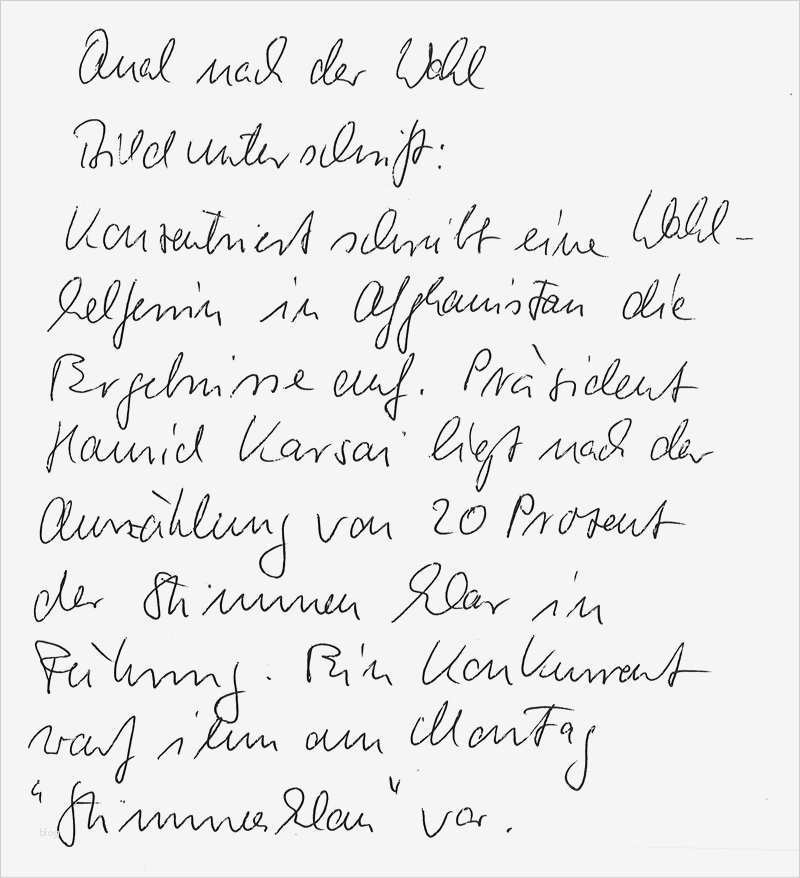 Qual nach der Wahl
Bildunterschrift:
Konzentriert schreibt eine Wahl-
helferin in Afghanistan die
Ergebnisse auf. Präsident
Hamid Karsai liegt nach der
Auszählung von 20 Prozent
der Stimmen klar in
Führung. Ein Konkurrent
warf ihm am Montag
"Stimmenklau" vor.